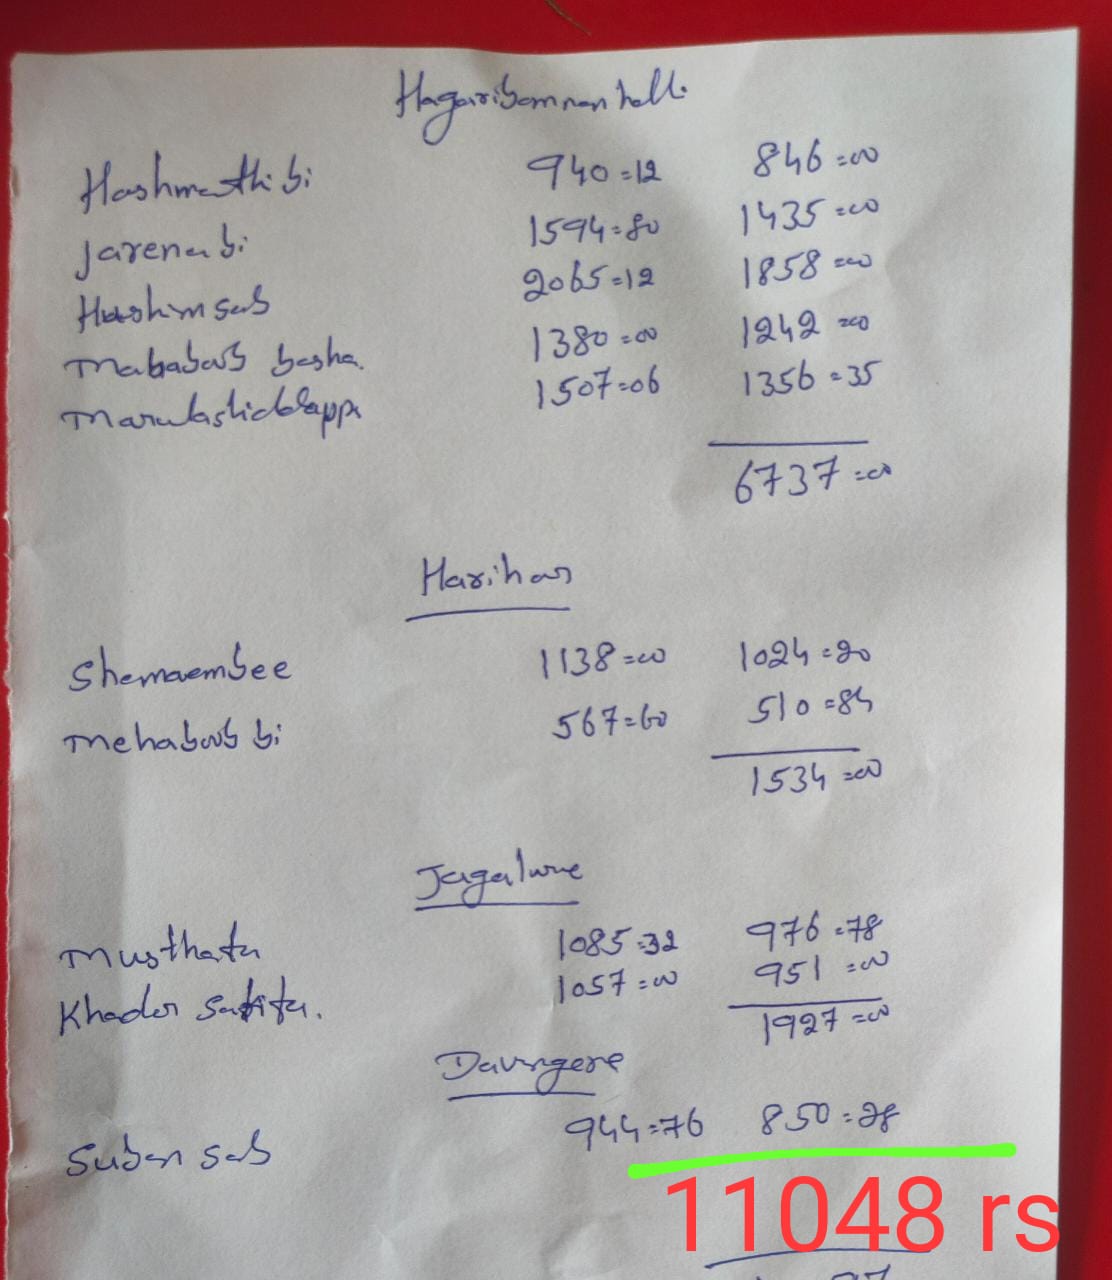 Hagaribomnanhalli
Hashmathi bi 940=12 846=00
Jarena bi 1594=80 1435=00
Hashim sab 2065=12 1858=00
Mababub basha. 1380=00 1242=00
1507=06 1356=35
6737=00
Harihar
Shemaembee 1138=00 1024=20
Mehabub bi 567=60 510=84
1534=00
Jagalure
Musthafa 1085=32 976=78
Khader 1057=00 951=00
1927=00
Davngere
Suban sab 944=76 850=28
11048 rs